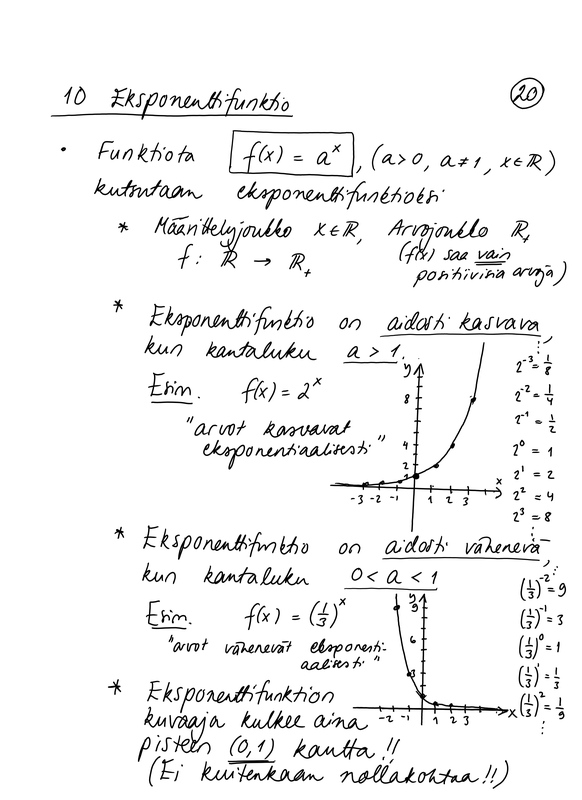 10 Eksponenttifunktio
20
• Funktiota f(x) = aˣ, (a>0, a≠1, x∈ℝ)
kutsutaan eksponenttifunktioksi
* Määrittelyjoukko x∈ℝ, Arvojoukko ℝ₊
f: ℝ → ℝ₊ (f(x) saa vain
positiivisia arvoja)
* Eksponenttifunktio on aidosti kasvava,
kun kantaluku a > 1.
Esim. f(x) = 2ˣ
"arvot kasvavat
eksponentiaalisesti"
y
8
4
2
1
-3 -2 -1 1 2 3 x
2⁻³ = 1/8
2⁻² = 1/4
2⁻¹ = 1/2
2⁰ = 1
2¹ = 2
2² = 4
2³ = 8
* Eksponenttifunktio on aidosti vähenevä,
kun kantaluku 0 < a < 1
Esim. f(x) = (1/3)ˣ
"arvot vähenevät eksponenti-
aalisesti"
y
9
6
3
-2 -1 1 2 3 x
(1/3)⁻² = 9
(1/3)⁻¹ = 3
(1/3)⁰ = 1
(1/3)¹ = 1/3
(1/3)² = 1/9
* Eksponenttifunktion
kuvaaja kulkee aina
pisteen (0,1) kautta!!
(Ei kuitenkaan nollakohtaa!!)